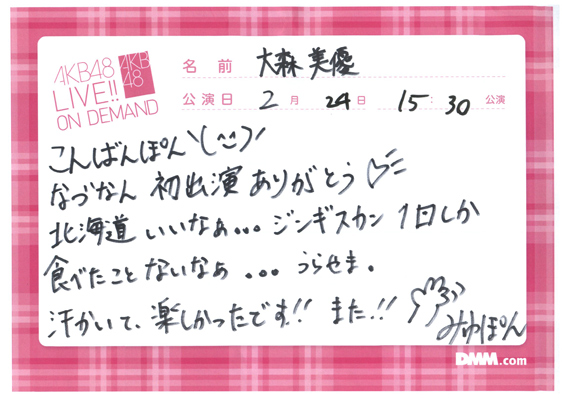 AKB48
LIVE!!
ON DEMAND
AKB
48
名前 大森美優
公演日 2月 24日 15:30 公演
こんばんぽん\(^^)/
なづなん 初出演 ありがとう
北海道 いいなぁ... ジンギスカン 1回しか
食べたことないなぁ ... うらやま。
汗かいて、楽しかったです!! また!!
みゆぽん
DMM.com